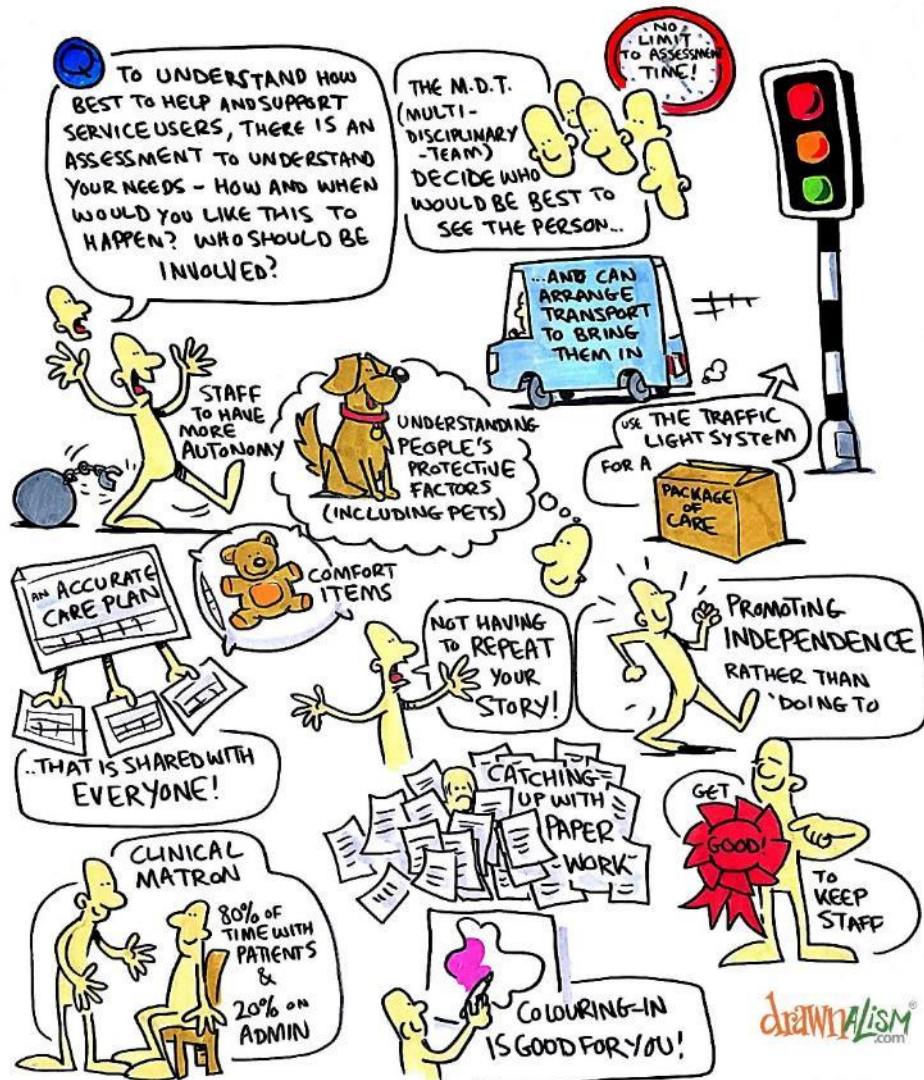 Q
TO UNDERSTAND HOW
BEST TO HELP AND SUPPORT
SERVICE USERS, THERE IS AN
ASSESSMENT TO UNDERSTAND
YOUR NEEDS - HOW AND WHEN
WOULD YOU LIKE THIS TO
HAPPEN? WHO SHOULD BE
INVOLVED?
THE M.D.T.
(MULTI-
DISCIPLINARY
-TEAM)
DECIDE WHO
WOULD BE BEST TO
SEE THE PERSON...
NO
LIMIT
TO ASSESSMENT
TIME!
...AND CAN
ARRANGE
TRANSPORT
TO BRING
THEM IN
STAFF
TO HAVE
MORE
AUTONOMY
UNDERSTANDING
PEOPLE'S
PROTECTIVE
FACTORS
(INCLUDING PETS)
USE THE TRAFFIC
LIGHT SYSTEM
FOR A
PACKAGE
OF
CARE
AN ACCURATE
CARE PLAN
..THAT IS SHARED WITH
EVERYONE!
COMFORT
ITEMS
NOT HAVING
TO REPEAT
YOUR
STORY!
PROMOTING
INDEPENDENCE
RATHER THAN
'DOING TO
CATCHING
UP WITH
PAPER
WORK
GET
GOOD!
TO
KEEP
STAFF
CLINICAL
MATRON
80% OF
TIME WITH
PATIENTS
&
20% ON
ADMIN
COLOURING-IN
IS GOOD FOR YOU!
drawnALISM®
.com